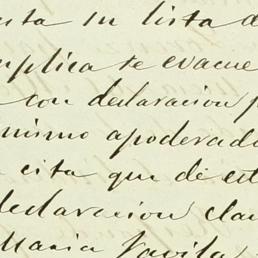 sta in lista d
uplica te evacue
con declaracion p
mismo apoderado
cita que de est
declaracion clar
Maria Favila